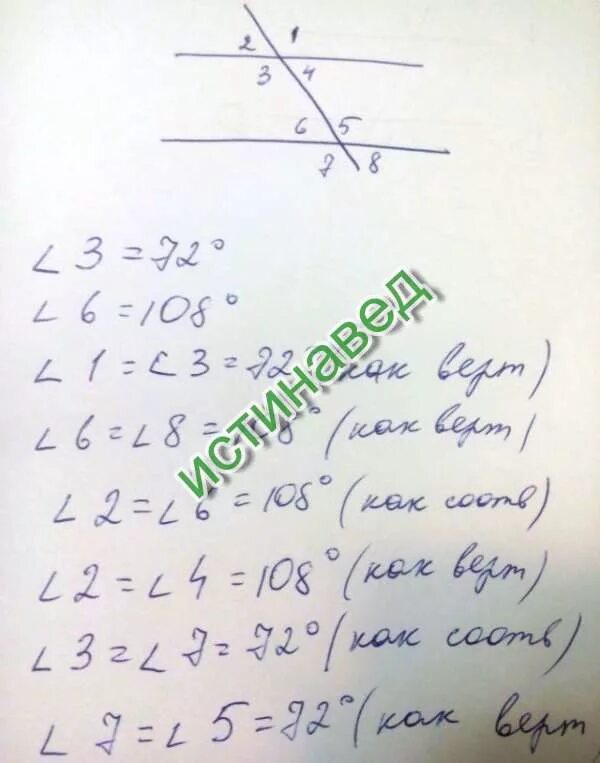 2 1
3 4
6 5
7 8
∠3 = 72°
∠6 = 108°
∠1 = ∠3 = 72° (как верт)
∠6 = ∠8 = 108° (как верт)
∠2 = ∠6 = 108° (как соотв)
∠2 = ∠4 = 108° (как верт)
∠3 = ∠7 = 72° (как соотв)
∠7 = ∠5 = 72° (как верт
истинавед